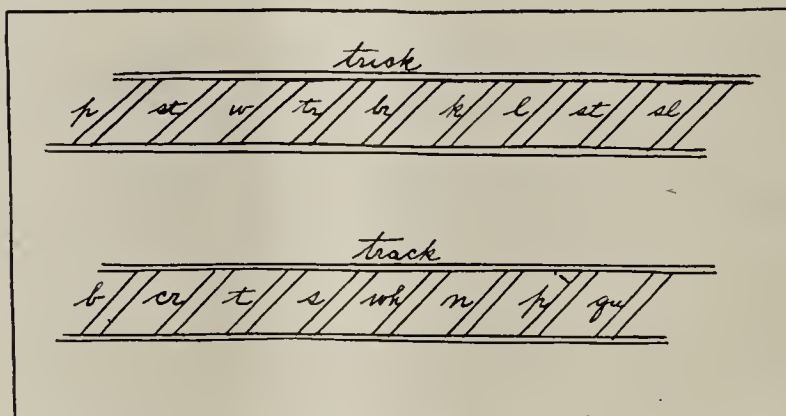 trick
p st w tr br k l st sl
track
b cr t s wh n p qu